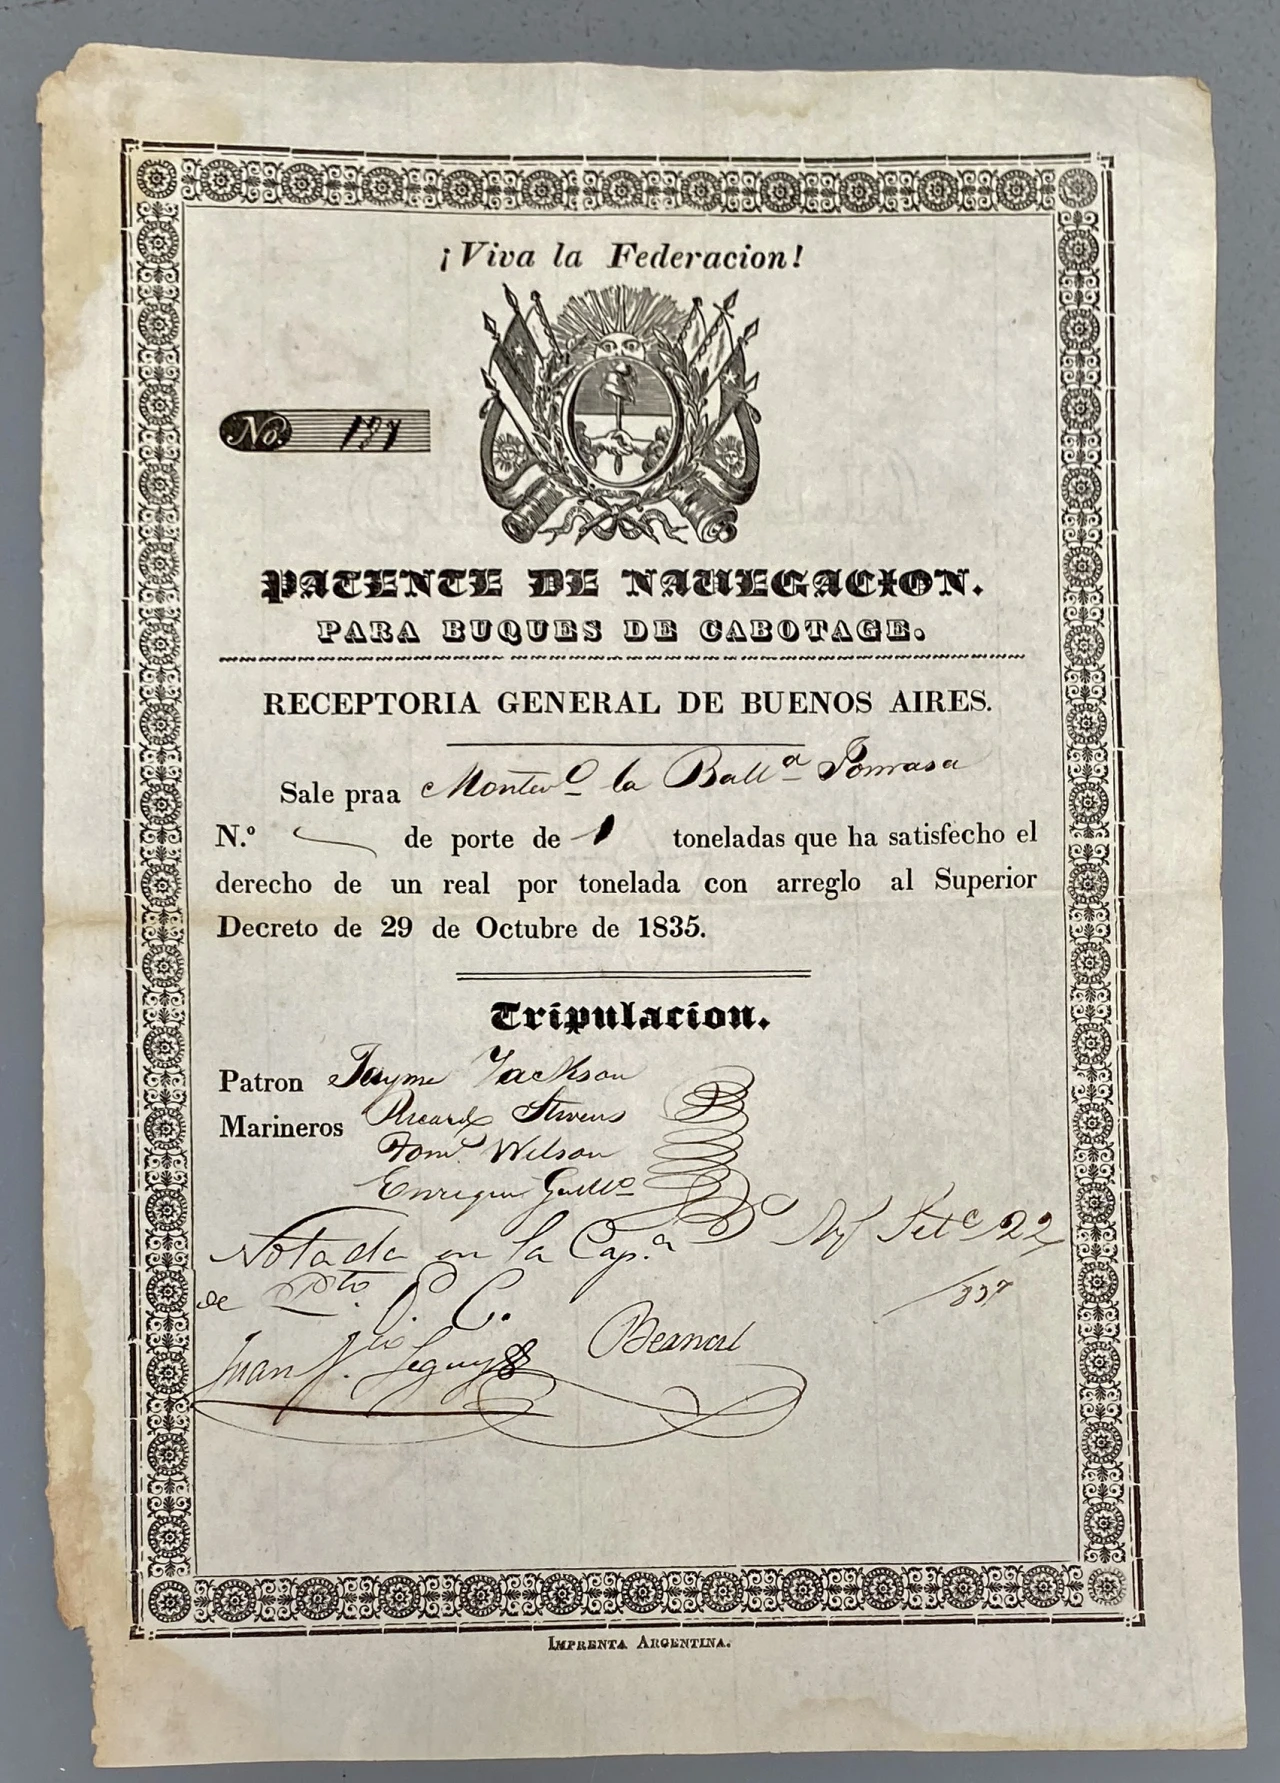 ¡Viva la Federacion!
No.
PATENTE DE NAVEGACION.
PARA BUQUES DE CABOTAGE.
RECEPTORIA GENERAL DE BUENOS AIRES.
Sale praa Montevº la Ballª
N.º de porte de 1 toneladas que ha satisfecho el
derecho de un real por tonelada con arreglo al Superior
Decreto de 29 de Octubre de 1835.
Tripulacion.
Patron Jayme Jackson
Marineros Ricardo Stivens
Tomˢ Wilson
Enrique Guillº
Notada en la Cap.ª Setᵉ 22
de Pto. P. C. /837
Juan J. Bernal
IMPRENTA ARGENTINA.